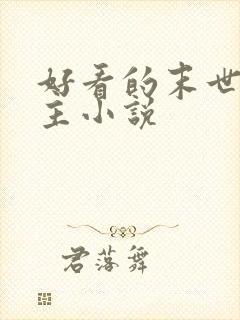 好看的末世
主小说
君落舞